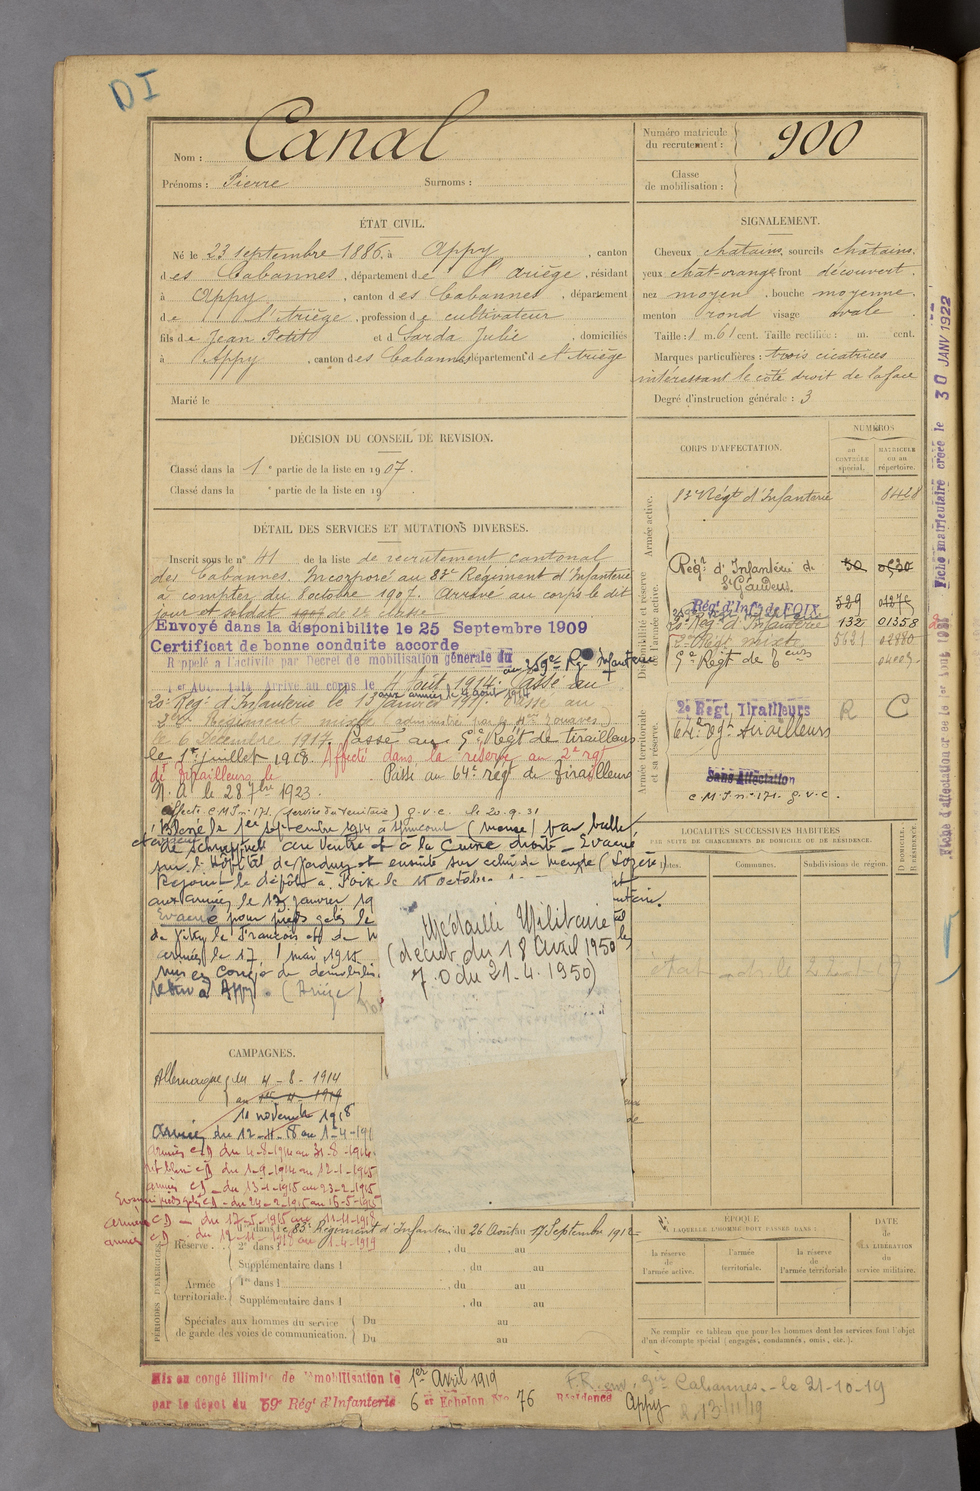 DI
Nom : Canal
Prénoms : Pierre Surnoms :
Numéro matricule du recrutement : 900
Classe de mobilisation :
ÉTAT CIVIL.
Né le 23 septembre 1886, à Appy, canton
des Cabannes, département de l'ariège, résidant
à Appy, canton des Cabannes, département
de l'Ariège, profession de cultivateur
fils de Jean Petit et d Sarda Julie, domiciliés
à Appy, canton des Cabannes, département de l'Ariège
Marié le
SIGNALEMENT.
Cheveux chatains, sourcils chatains,
yeux chat-orangé, front découvert,
nez moyen, bouche moyenne,
menton rond visage ovale.
Taille : 1 m. 61 cent. Taille rectifiée : m. cent.
Marques particulières : trois cicatrices
intéressant le côté droit de la face
Degré d'instruction générale : 3
DÉCISION DU CONSEIL DE REVISION.
Classé dans la 1e partie de la liste en 1907.
Classé dans la e partie de la liste en 19
DÉTAIL DES SERVICES ET MUTATIONS DIVERSES.
Inscrit sous le n° 41 de la liste de recrutement cantonal
des Cabannes. Incorporé au 83e Régiment d'Infanterie
à compter du 8 octobre 1907. Arrivé au corps le dit
jour et soldat de 2e classe.
Envoyé dans la disponibilite le 25 Septembre 1909
Certificat de bonne conduite accorde
Rappelé à l'activité par Décret de mobilisation générale du
1er AOUT 1914 Arrivé au corps le 4 Août 1914. Passé au
20e Reg. d'Infanterie le 13 janvier 1917. Passé au
2e Régiment mixte (administré par le 4me Zouaves)
le 6 Décembre 1917. Passé au 5e Régt de tirailleurs
le 1er juillet 1918. Affecté dans la réserve au 2e rgt
de tirailleurs le Passé au 64e rég. de Tirailleurs
N. A le 28 7bre 1923.
affecté C M I n° 171 (service du territoire) g.v.c. le 20.9.31
Blessé le 1er septembre 1914 à (meuse) par balle
de schrapnell au ventre et à la cuisse droite - Evacué
sur l'Hôpital de et ensuite sur celui de Mende (Lozère)
Rejoint le dépôt à Foix le 11 octobre
aux armées le 13 janvier 19
Evacué pour pieds gelés le
de Vitry le François et de
armées le 17 mai 1915
mis en congé de démobilis
retiré à Appy. (Ariège)
Médaille Militaire
(décret du 18 Avril 1950
J.O du 21.4.1950)
CORPS D'AFFECTATION.
NUMÉROS
AU CONTRÔLE spécial.
MATRICULE ou au répertoire.
Armée active.
83e Régt d'Infanterie 6428
Disponibilité et réserve de l'armée active.
Régt d'Infanterie de St Gaudens 50
Régt d'Infie de FOIX 529
20e Rég d'Infanterie 132 01358
2e Régt mixte 5621
5e Régt de Teurs
Armée territoriale et sa réserve.
2e Régt. Tirailleurs R C
64e Rgt. tirailleurs
Sans Affectation
C.M.I. n° 171. g.v.c.
LOCALITÉS SUCCESSIVES HABITÉES
PAR SUITE DE CHANGEMENTS DE DOMICILE OU DE RÉSIDENCE.
Dates. Communes. Subdivisions de région. D DOMICILE. R RÉSIDENCE.
Fiche matriculaire créée le 30 JANV 1922
CAMPAGNES.
Allemagne du 4-8-1914
au 1er-4-1919
11 novembre 1918
Armées du 12-11-18 au 1-4-191
armées CD du 4-8-1914 au 31-8-1914
int blessé CD du 1-9-1914 au 12-1-1915
armées CD - du 13-1-1915 au 23-2-1915
Evacué pieds gelés CD - du 24-2-1915 au 16-5-1915
armées CD - du 17-5-1915 au 11-11-1918
armées CD - du 12-11-1918 au 1-4-1919
PÉRIODES D'EXERCICES
Réserve.
1re dans le 83e Régiment d'Infanterie, du 26 Août au 17 Septembre 1912
2e dans l , du au
Supplémentaire dans l , du au
Armée territoriale.
1re dans l , du au
Supplémentaire dans l , du au
Spéciales aux hommes du service de garde des voies de communication.
Du au
Du au
ÉPOQUE
À LAQUELLE L'HOMME DOIT PASSER DANS :
la réserve de l'armée active.
l'armée territoriale.
la réserve de l'armée territoriale
DATE de LA LIBÉRATION du service militaire.
Ne remplir ce tableau que pour les hommes dont les services font l'objet
d'un décompte spécial (engagés, condamnés, omis, etc.).
Mis en congé illimité de démobilisation le 1er Avril 1919
par le dépôt du 59e Régt d'Infanterie 6e Echelon No 76 Résidence Appy
Cabannes. - le 21-10-19
13/11/19